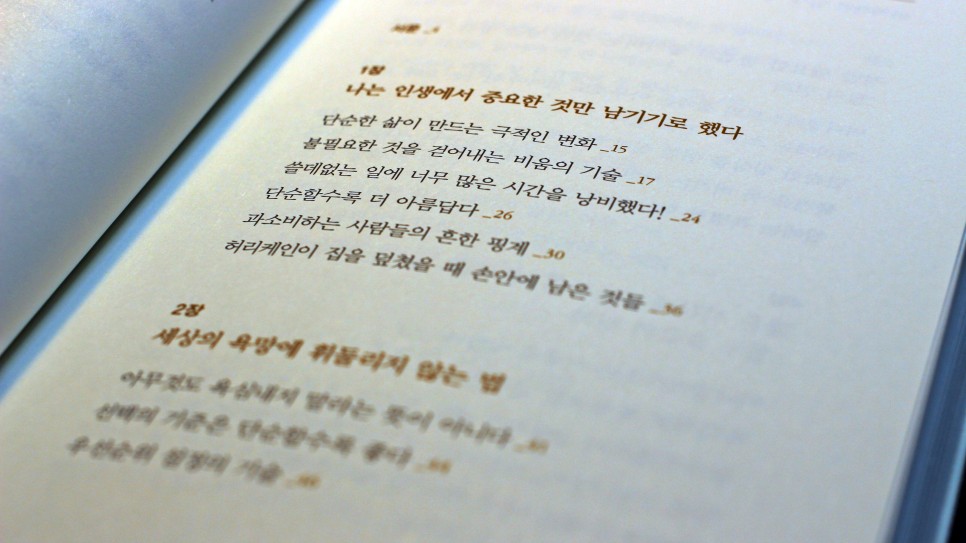 서문 _5
1장
나는 인생에서 중요한 것만 남기기로 했다
단순한 삶이 만드는 극적인 변화 _15
불필요한 것을 걷어내는 비움의 기술 _17
쓸데없는 일에 너무 많은 시간을 낭비했다! _24
단순할수록 더 아름답다 _26
과소비하는 사람들의 흔한 핑계 _30
허리케인이 집을 덮쳤을 때 손안에 남은 것들 _36
2장
세상의 욕망에 휘둘리지 않는 법
아무것도 욕심내지 말라는 뜻이 아니다
선택의 기준은 단순할수록 좋다
우선순위 설정의 기술